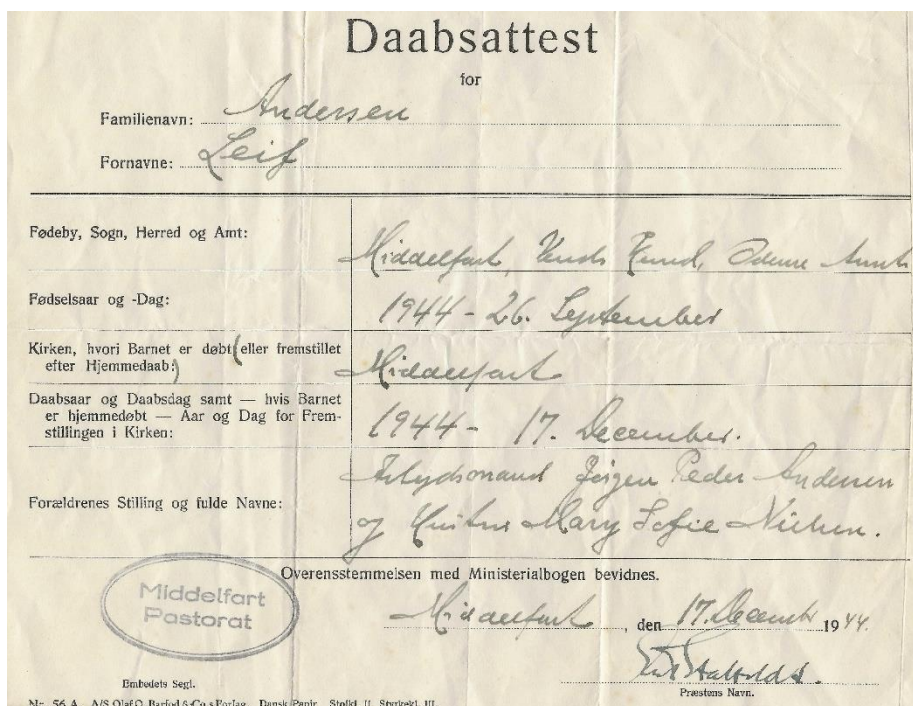 Daabsattest
for
Familienavn: Andersen
Fornavne: Leif
Fødeby, Sogn, Herred og Amt:
Middelfart, Vends Herred, Odense Amt
Fødselsaar og -Dag:
1944 - 26. September
Kirken, hvori Barnet er døbt (eller fremstillet
efter Hjemmedaab:)
Middelfart
Daabsaar og Daabsdag samt — hvis Barnet
er hjemmedøbt — Aar og Dag for Frem-
stillingen i Kirken:
1944 - 17. December.
Forældrenes Stilling og fulde Navne:
Arbejdsmand Jörgen Peder Andersen
og Hustru Mary Sofie Nielsen.
Overensstemmelsen med Ministerialbogen bevidnes.
Middelfart
Pastorat
Middelfart, den 17. December 1944.
Embedets Segl.
Præstens Navn.
Nr. 56 A. A/S Olaf O. Barfod & Co.s Forlag. Dansk Papir. Stofkl. II. Styrkekl. III.